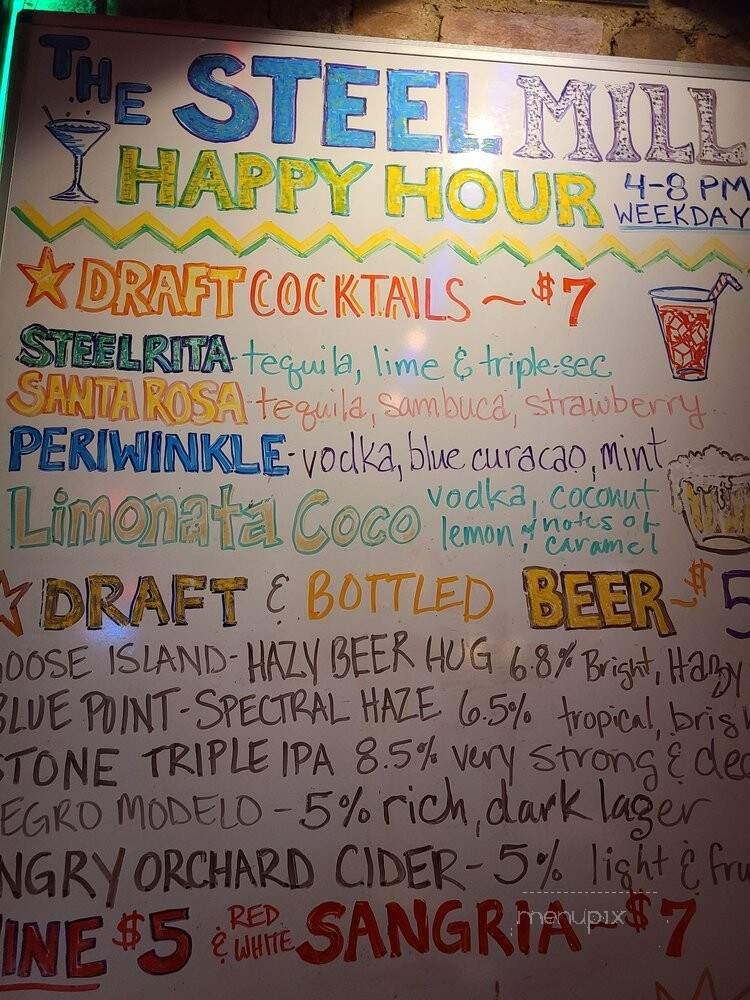 THE STEEL MILL
HAPPY HOUR 4-8 PM
WEEKDAY
DRAFT COCKTAILS ~ $7
STEELRITA - tequila, lime & triple-sec
SANTA ROSA - tequila, sambuca, strawberry
PERIWINKLE - vodka, blue curacao, mint
Limonata Coco vodka, coconut
lemon & notes of
caramel
DRAFT & BOTTLED BEER ~ $5
OOSE ISLAND - HAZY BEER HUG 6.8% Bright, Hazy
BLUE POINT - SPECTRAL HAZE 6.5% tropical, brig
STONE TRIPLE IPA 8.5% very strong & dec
EGRO MODELO - 5% rich, dark lager
NGRY ORCHARD CIDER - 5% light & fru
INE $5 & RED WHITE SANGRIA ~ $7
menupix